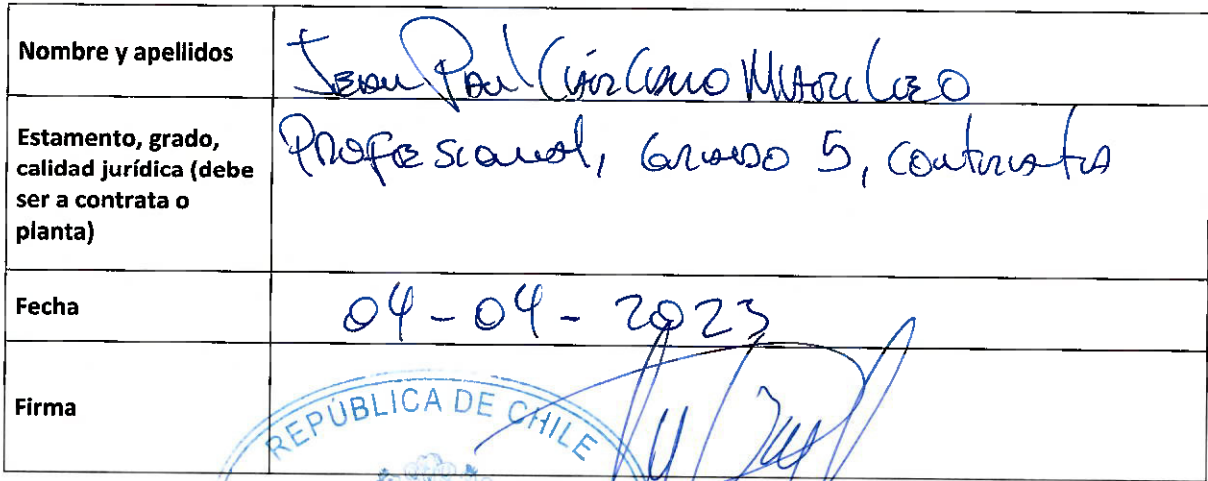 Nombre y apellidos
Jean Paul
Estamento, grado,
calidad jurídica (debe
ser a contrata o
planta)
Profesional, Grado 5, contrata
Fecha
04-04-2023
Firma
REPÚBLICA DE CHILE